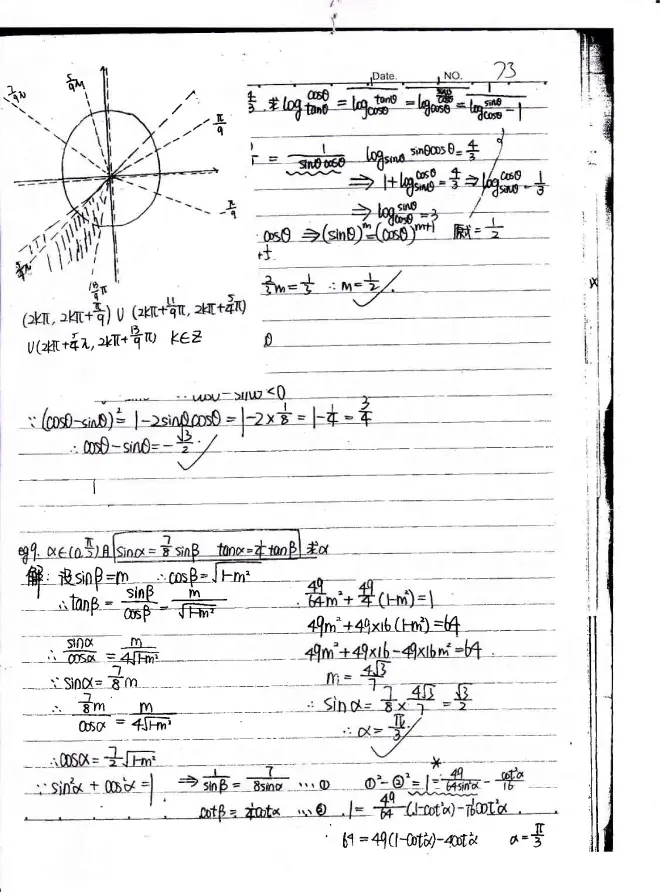 Date. NO. 73
5/9π
7/9π
π/9
-π/9
5/4π
13/9π
4/3. 求 log_tanθ^cosθ = 1/log_cosθ^tanθ = 1/log_cosθ^(sinθ/cosθ) = 1/(log_cosθ^sinθ - 1)
= 1/(sinθ cosθ) log_sinθ sinθcosθ = 4/3
⇒ 1+log_sinθ^cosθ = 4/3 ⇒ log_sinθ^cosθ = 1/3
⇒ log_cosθ^sinθ = 3
cosθ ⇒ (sinθ)^m = (cosθ)^(m+1) 原式 = 1/2
2/3 m = 1/3 ∴ m = 1/2 .
(2kπ, 2kπ+π/9) ∪ (2kπ+11/9π, 2kπ+5/4π)
∪(2kπ+5/4π, 2kπ+13/9π) k∈Z
θ
∴ cosθ - sinθ < 0
∵ (cosθ-sinθ)² = 1-2sinθcosθ = 1-2×1/8 = 1-1/4 = 3/4
∴ cosθ - sinθ = -√3/2 .
eg9. α∈(0, π/2) 且 sinα = 7/8 sinβ tanα = 1/4 tanβ 求α
解: 设 sinβ = m ∴ cosβ = √(1-m²)
∴ tanβ = sinβ/cosβ = m/√(1-m²)
∴ sinα/cosα = m/(4√(1-m²))
∵ sinα = 7/8 m
∴ (7/8 m)/cosα = m/(4√(1-m²))
∴ cosα = 7/2 √(1-m²)
∵ sin²α + cos²α = 1
49/64 m² + 49/4 (1-m²) = 1
49m² + 49×16(1-m²) = 64
49m² + 49×16 - 49×16m² = 64
m = 4√3/7
∴ sinα = 7/8 × 4√3/7 = √3/2
∴ α = π/3
⇒ 1/sinβ = 7/(8sinα) … ①
cotβ = 1/4 cotα … ②
*
①² - ②² = 1 = 49/(64sin²α) - cot²α/16
1 = 49/64 (1-cot²α) - 1/16 cot²α
64 = 49(1-cot²α) - 4cot²α α = π/3